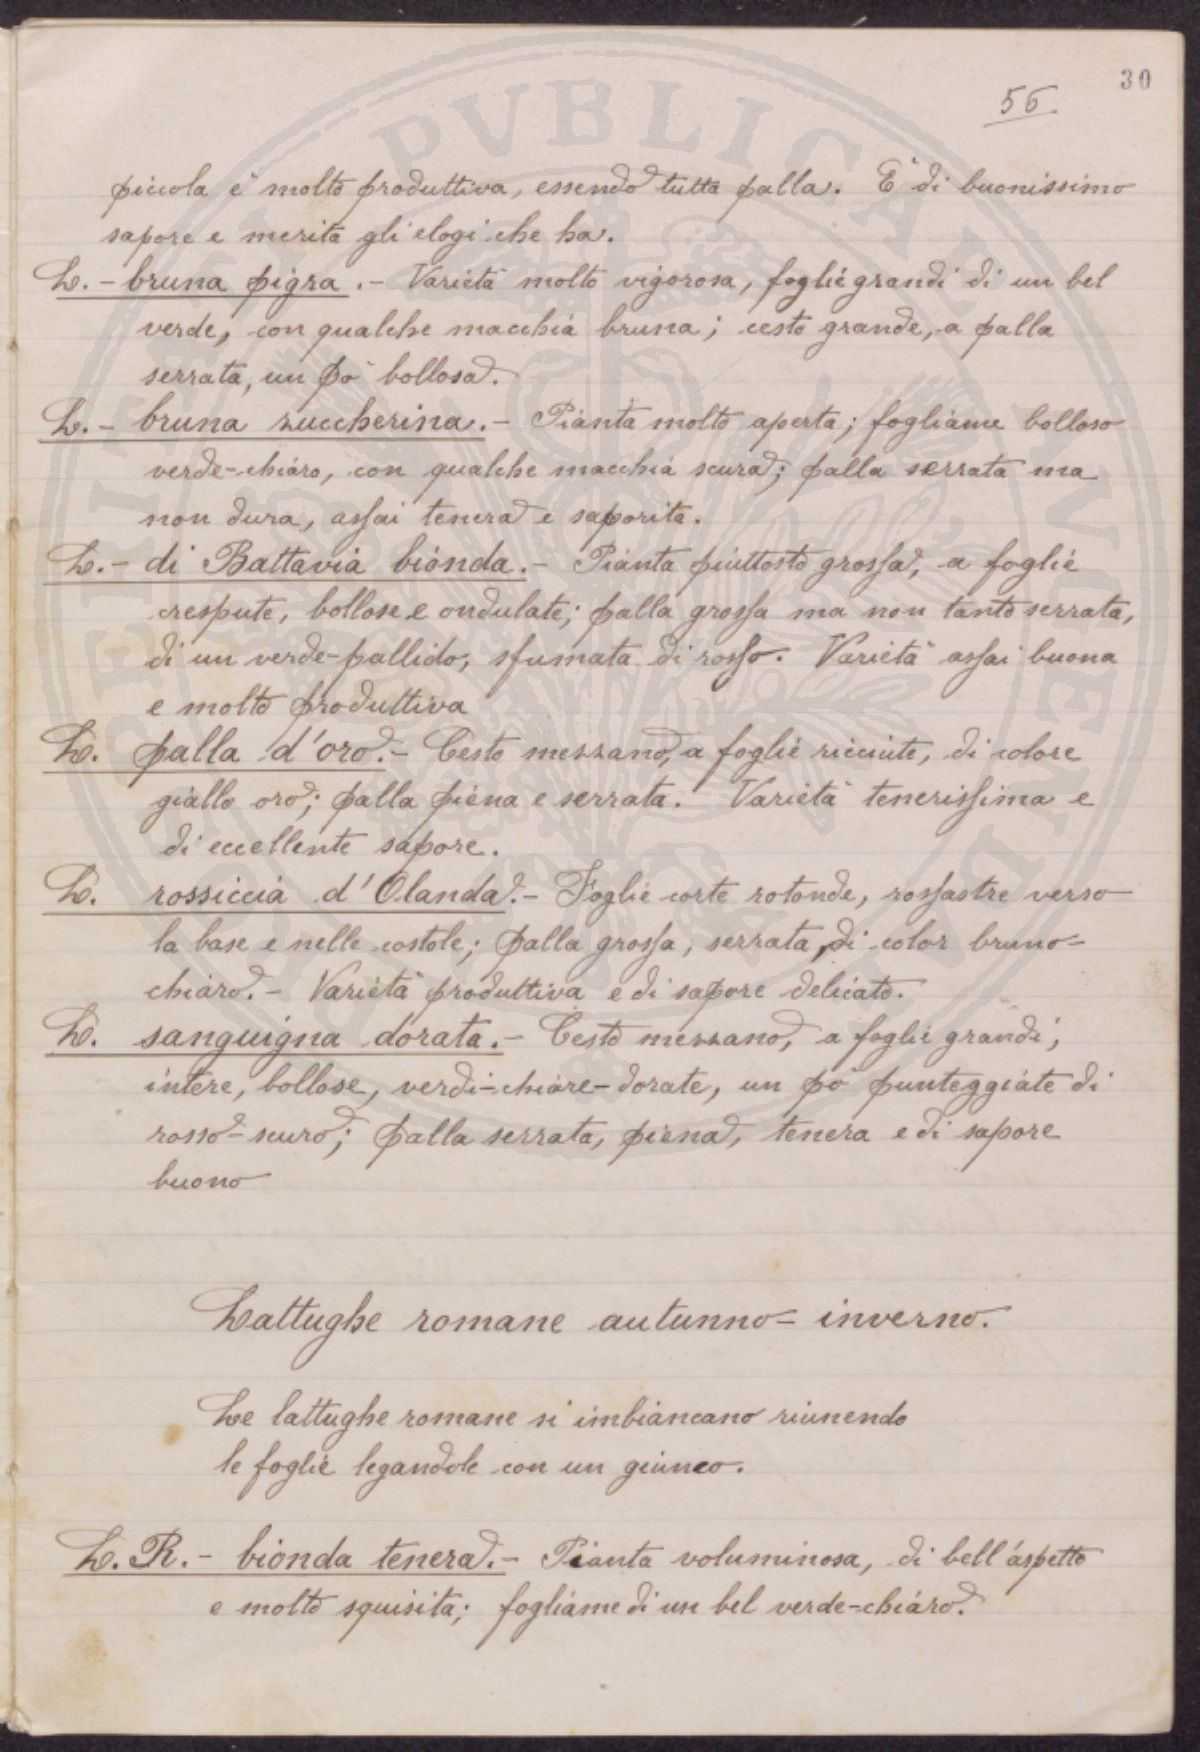 30
56
piccola è molto produttiva, essendo tutta palla. È di buonissimo
sapore e merita gli elogi che ha.
L. - bruna pigra. - Varietà molto vigorosa, foglie grandi di un bel
verde, con qualche macchia bruna; cesto grande, a palla
serrata, un pò bollosa.
L. - bruna zuccherina. - Pianta molto aperta; fogliame bolloso
verde-chiaro, con qualche macchia scura; palla serrata ma
non dura, assai tenera e saporita.
L. - di Battavia bionda. - Pianta piuttosto grossa, a foglie
crespute, bollose e ondulate; palla grossa ma non tanto serrata,
di un verde-pallido, sfumata di rosso. Varietà assai buona
e molto produttiva
L. palla d'oro. - Cesto mezzano, a foglie ricciute, di colore
giallo oro; palla piena e serrata. Varietà tenerissima e
di eccellente sapore.
L. rossiccia d'Olanda. - Foglie corte rotonde, rossastre verso
la base e nelle costole; palla grossa, serrata, di color bruno=
chiaro. - Varietà produttiva e di sapore delicato.
L. sanguigna dorata. - Cesto mezzano, a foglie grandi,
intere, bollose, verdi-chiare-dorate, un pò punteggiate di
rosso-scuro; palla serrata, piena, tenera e di sapore
buono
Lattughe romane autunno=inverno.
Le lattughe romane si imbiancano riunendo
le foglie legandole con un giunco.
L. R. - bionda tenera. - Pianta voluminosa, di bell'aspetto
e molto squisita; fogliame di un bel verde-chiaro.